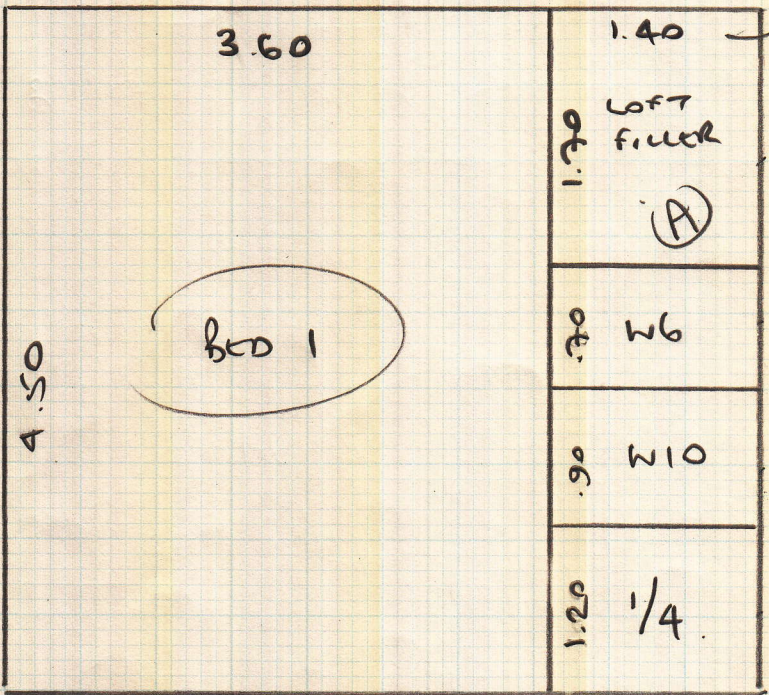 3.60
4.50
BED 1
1.40
1.70
LOFT
FILLER
A
.70
W6
.90
W10
1.20
1/4